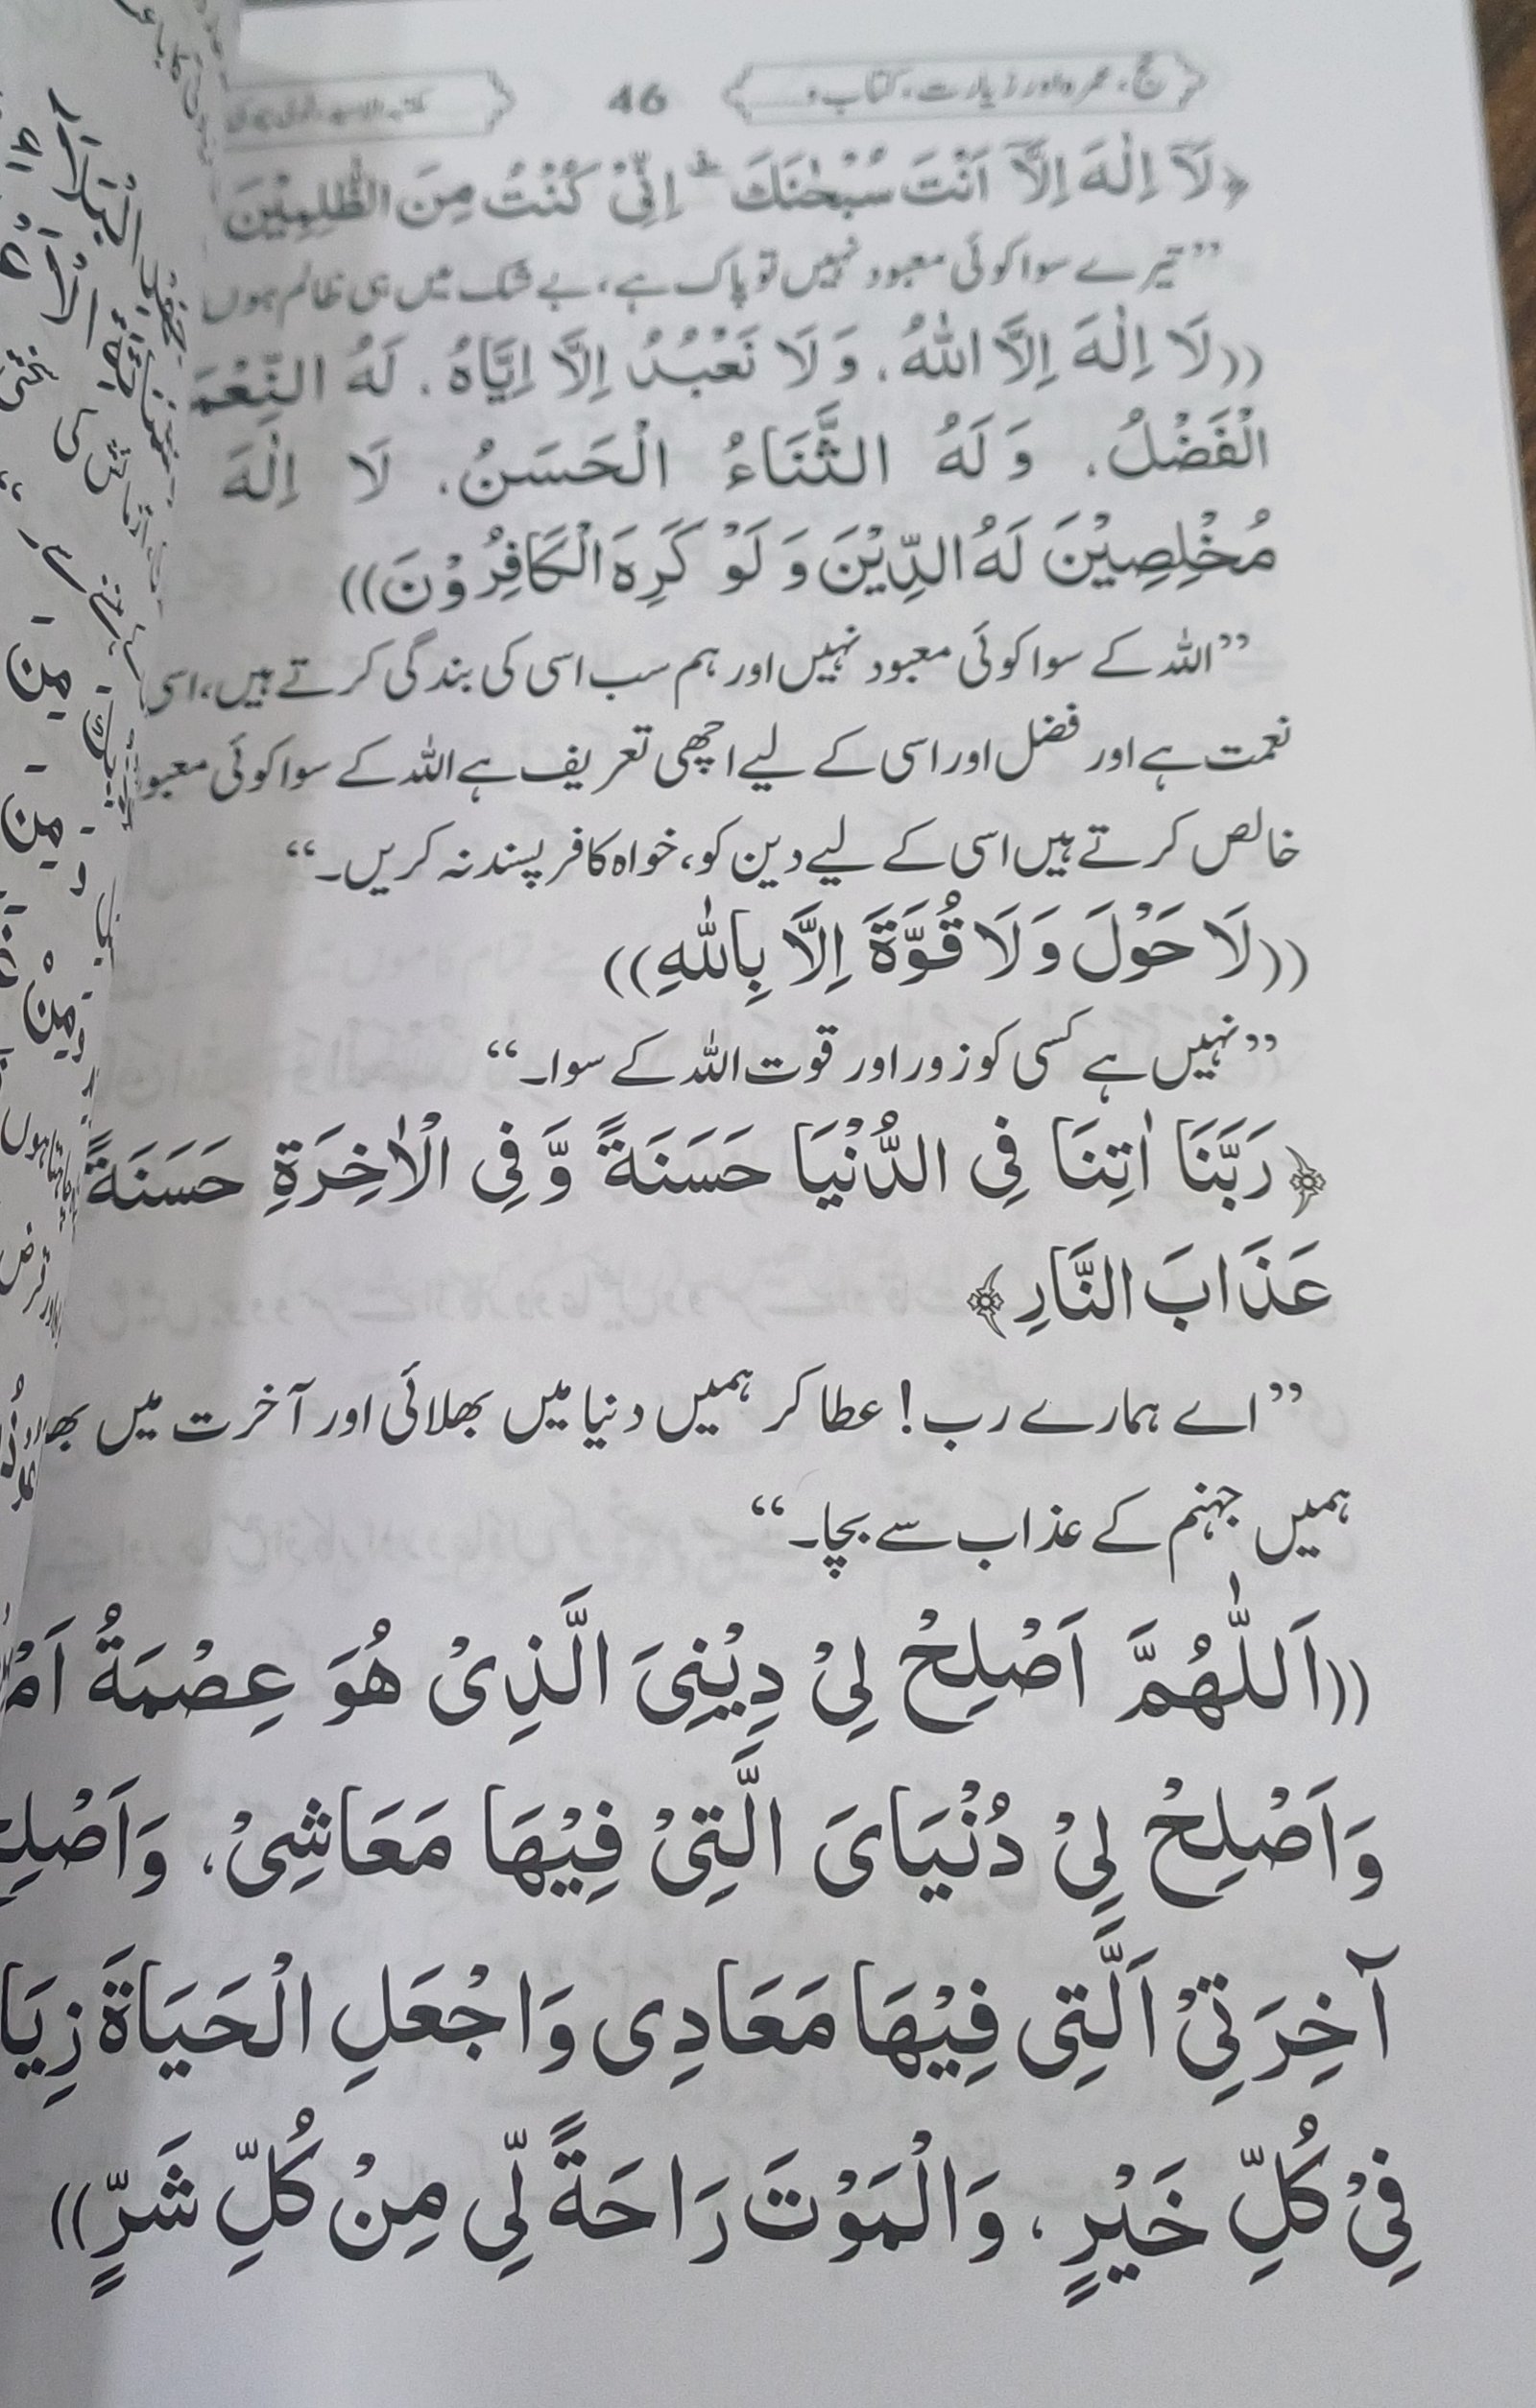 حج، عمرہ اور زیارت، کتاب و
46
﴿لَآ اِلٰهَ اِلَّآ اَنْتَ سُبْحٰنَكَ ۖ اِنِّيْ كُنْتُ مِنَ الظّٰلِمِيْنَ
”تیرے سوا کوئی معبود نہیں تو پاک ہے، بے شک میں ہی ظالم ہوں
((لَا اِلٰهَ اِلَّا اللّٰهُ، وَ لَا نَعْبُدُ اِلَّا اِيَّاهُ، لَهُ
الْفَضْلُ، وَ لَهُ الثَّنَاءُ الْحَسَنُ، لَا اِلٰهَ
مُخْلِصِيْنَ لَهُ الدِّيْنَ وَ لَوْ كَرِهَ الْكَافِرُوْنَ))
”اللہ کے سوا کوئی معبود نہیں اور ہم سب اسی کی بندگی کرتے ہیں، اسی
نعمت ہے اور فضل اور اسی کے لیے اچھی تعریف ہے اللہ کے سوا کوئی
خالص کرتے ہیں اسی کے لیے دین کو، خواہ کافر پسند نہ کریں۔“
((لَا حَوْلَ وَ لَا قُوَّةَ اِلَّا بِاللّٰهِ))
”نہیں ہے کسی کو زور اور قوت اللہ کے سوا۔“
﴿رَبَّنَا اٰتِنَا فِي الدُّنْيَا حَسَنَةً وَّ فِي الْاٰخِرَةِ حَسَنَةً
عَذَابَ النَّارِ﴾
”اے ہمارے رب! عطا کر ہمیں دنیا میں بھلائی اور آخرت میں
ہمیں جہنم کے عذاب سے بچا۔“
((اَللّٰهُمَّ اَصْلِحْ لِيْ دِيْنِيَ الَّذِيْ هُوَ عِصْمَةُ
وَاَصْلِحْ لِيْ دُنْيَايَ الَّتِيْ فِيْهَا مَعَاشِيْ،
آخِرَتِيْ اَلَّتِي فِيْهَا مَعَادِي وَاجْعَلِ الْحَيَاةَ
فِيْ كُلِّ خَيْرٍ، وَالْمَوْتَ رَاحَةً لِّي مِنْ كُلِّ شَرٍّ))